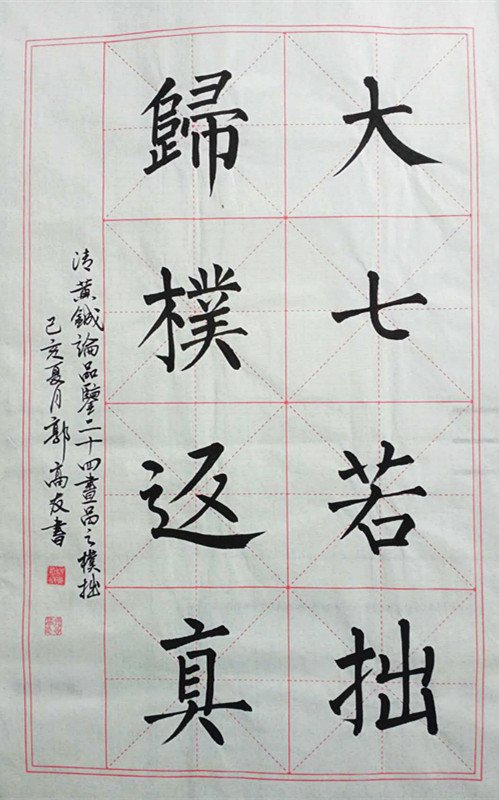 大七若拙
歸樸返真
清黃鉞論品鑒二十四畫品之樸拙
己亥夏月郭高友書